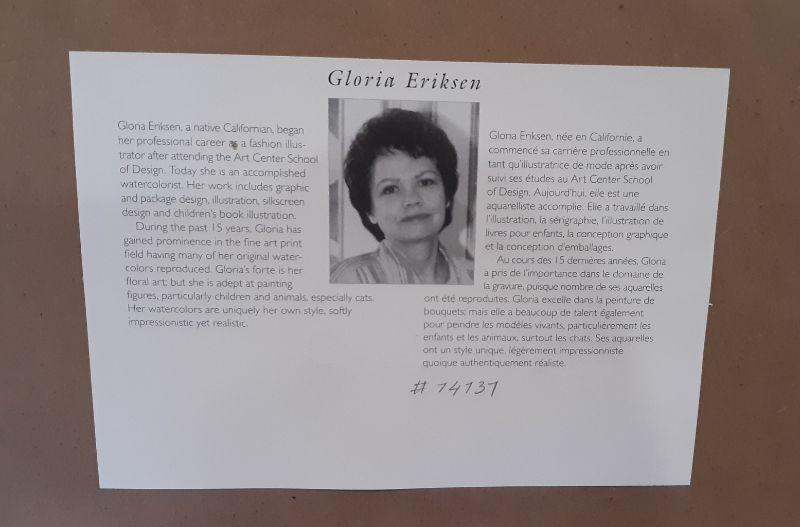 Gloria Eriksen
Gloria Eriksen, a native Californian, began
her professional career as a fashion illus-
trator after attending the Art Center School
of Design. Today she is an accomplished
watercolorist. Her work includes graphic
and package design, illustration, silkscreen
design and children's book illustration.
During the past 15 years, Gloria has
gained prominence in the fine art print
field having many of her original water-
colors reproduced. Gloria's forte is her
floral art; but she is adept at painting
figures, particularly children and animals, especially cats.
Her watercolors are uniquely her own style, softly
impressionistic yet realistic.
Gloria Eriksen, née en Californie, a
commencé sa carrière professionnelle en
tant qu'illustratrice de mode après avoir
suivi ses études au Art Center School
of Design. Aujourd'hui, elle est une
aquarelliste accomplie. Elle a travaillé dans
l'illustration, la sérigraphie, l'illustration de
livres pour enfants, la conception graphique
et la conception d'emballages.
Au cours des 15 dernières années, Gloria
a pris de l'importance dans le domaine de
la gravure, puisque nombre de ses aquarelles
ont été reproduites. Gloria excelle dans la peinture de
bouquets; mais elle a beaucoup de talent également
pour peindre les modèles vivants, particulièrement les
enfants et les animaux, surtout les chats. Ses aquarelles
ont un style unique, légèrement impressionniste
quoique authentiquement réaliste.
# 14131